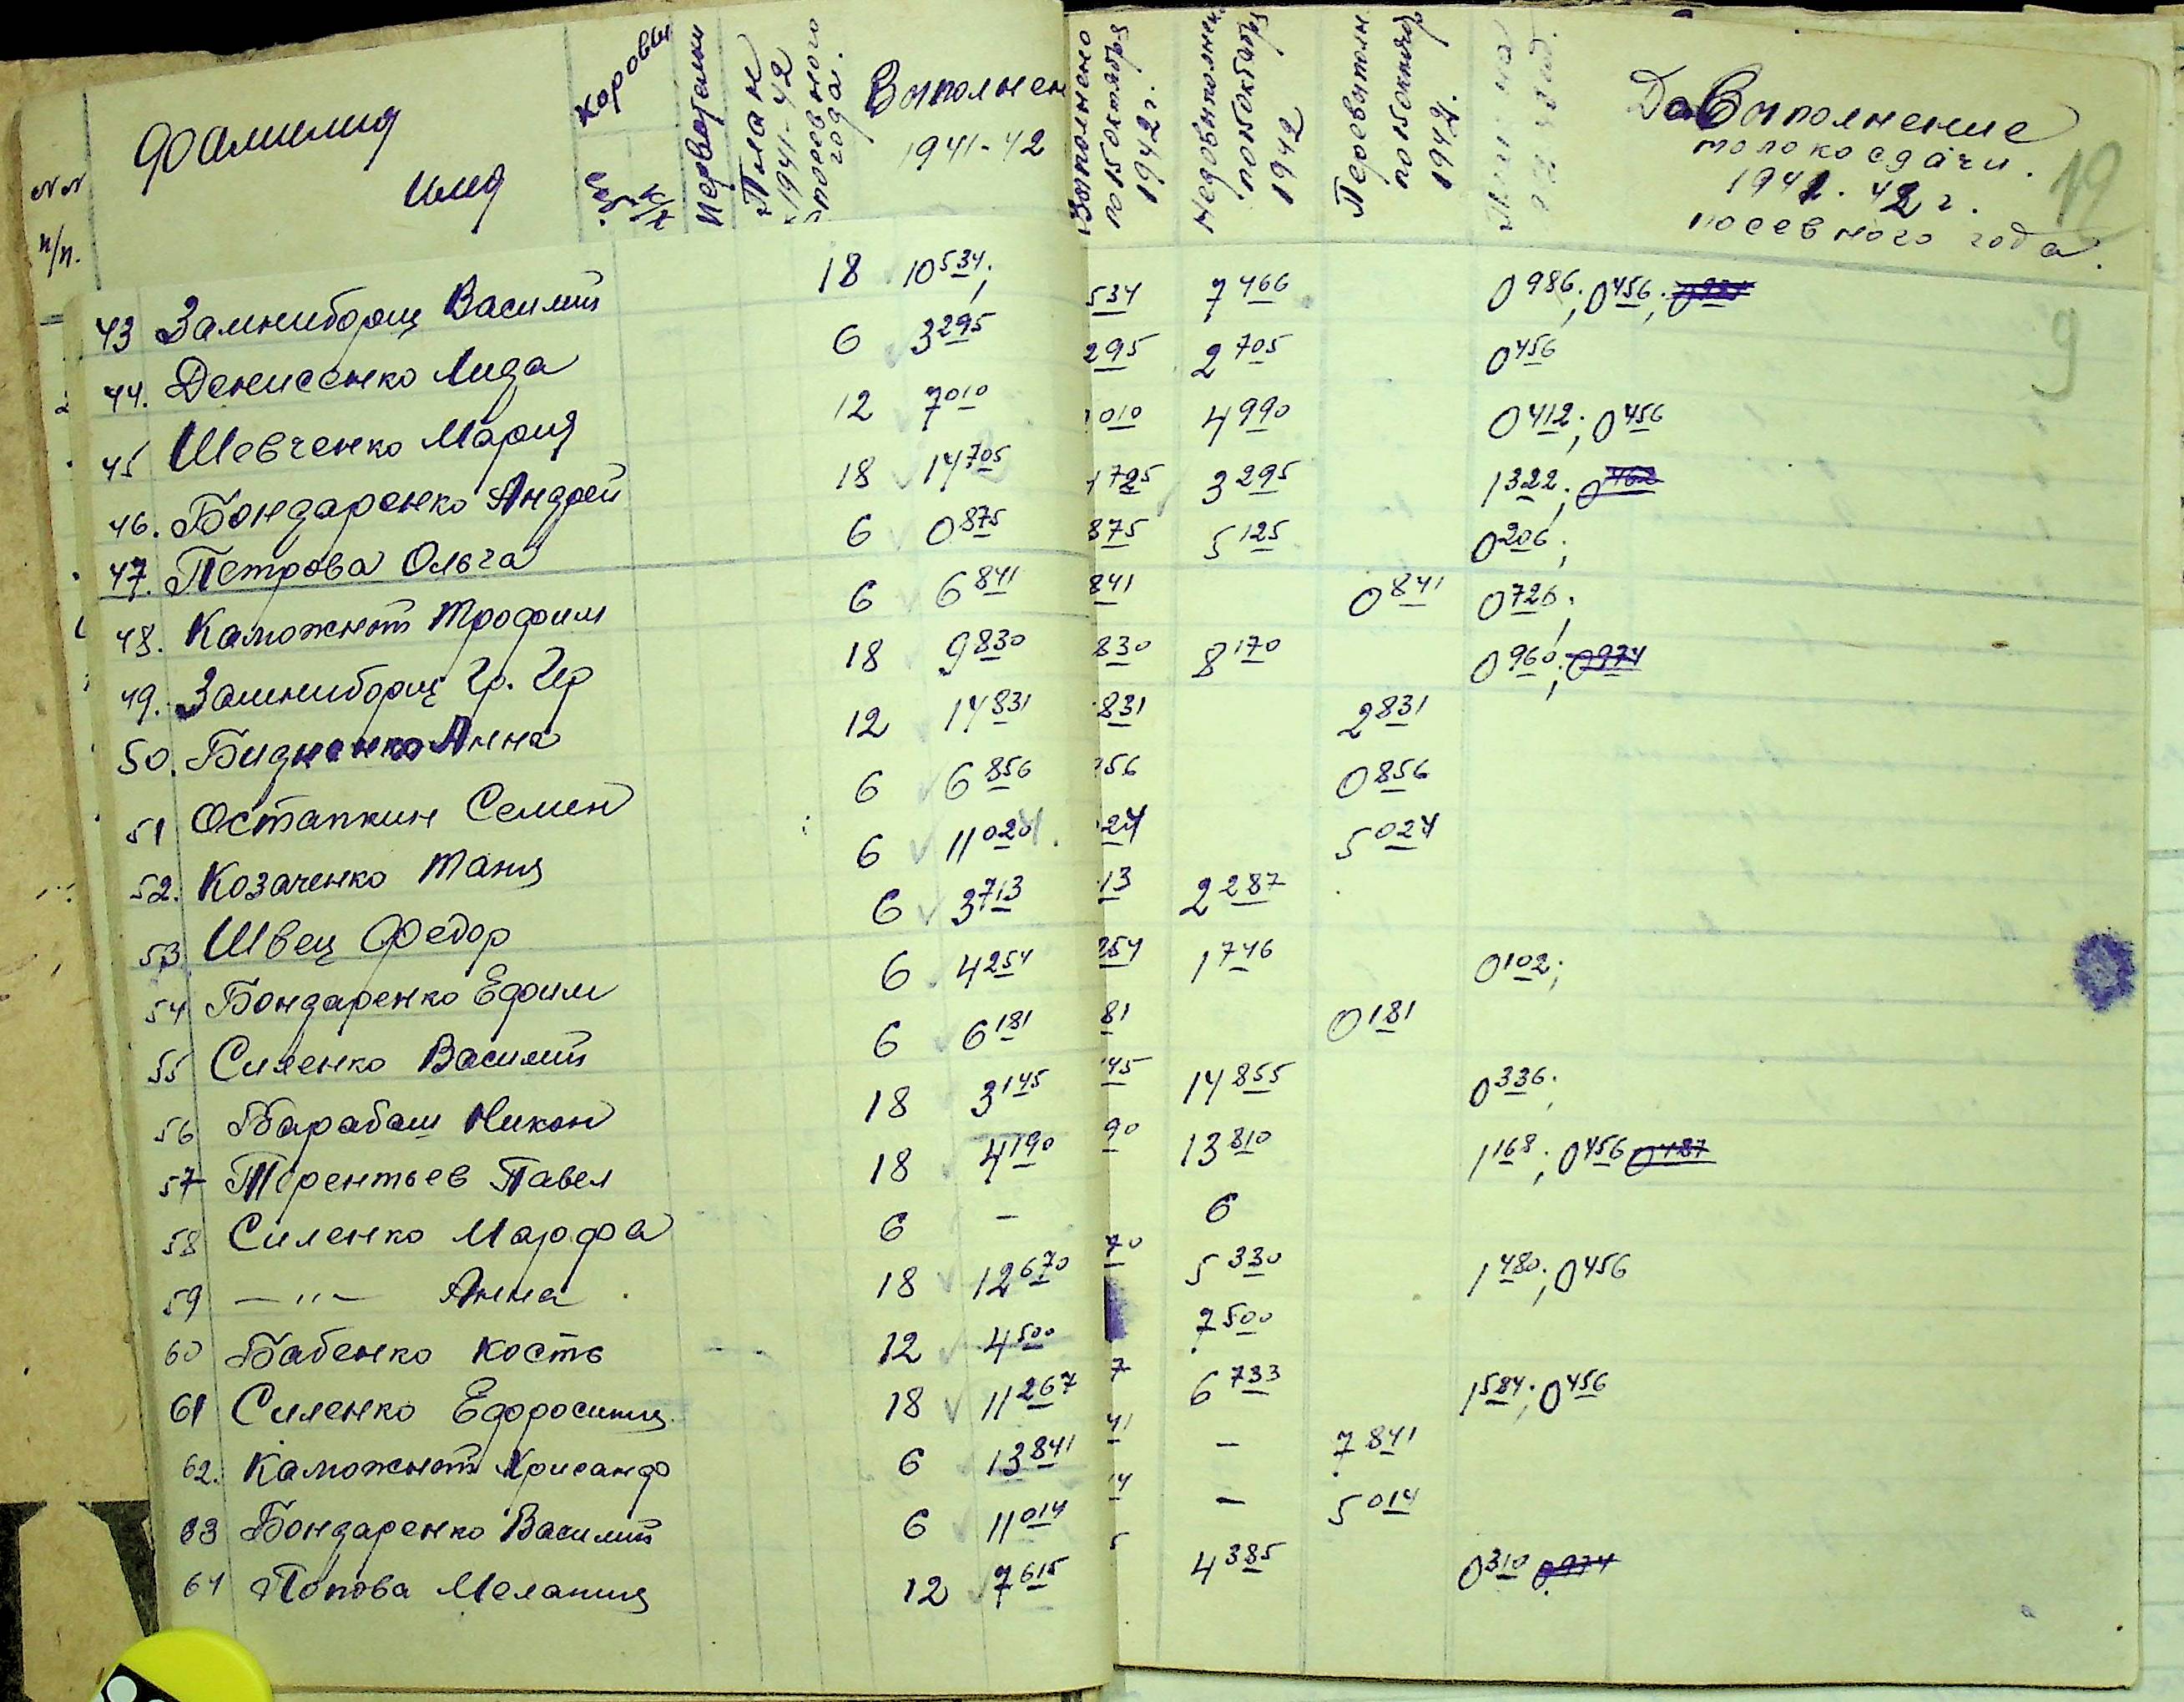 NN п/п. Фамилия имя коровы Первотелки План 1941-42 посевного года. Выполнен 1941-42 Выполнено по 15 октября 1942 г. Недовыполнен. по 15 октября 1942 Перевыполн. по 15 октября 1942. ДоВыполнение молокосдачи. 1941.42 г. посевного года. 12
43 Замниборщ Василий 18 10534; 534 7466 0986; 0456;
9
44. Денисенко Лида 6 3295 295 2705 0456
45 Шевченко Мария 12 7010 010 4990 0412; 0456
46. Бондаренко Андрей 18 14705 3295 1322;
47. Петрова Ольга 6 0875 875 5125 0206;
48. Каможный Трофим 6 6841 841 0841 0726;
49. Замниборщ Гр. Гр 18 9830 830 8170 0960; 0974
50. Бидненко Анна 12 14831 831 2831
51 Остапкин Семен 6 6856 856 0856
52. Козаченко Таня 6 11024 24 5024
53 Швец Федор 6 3713 13 2287
54 Бондаренко Ефим 6 4254 254 1746 0102;
55 Силенко Василий 6 6181 81 0181
56 Барабаш Никон 18 3145 45 14855 0336;
57 Терентьев Павел 18 4190 90 13810 1168; 0456 0487
58 Силенко Марфа 6 — 6
59 — " — Анна 18 12670 70 5330 1480; 0456
60 Бабенко Кость 12 4500 7500
61 Силенко Ефросиния 18 11267 7 6733 1584; 0456
62. Каможный Хрисанф 6 13841 41 — 7841
63 Бондаренко Василий 6 11014 14 — 5014
64 Попова Мелания 12 7615 5 4385 0310 0974